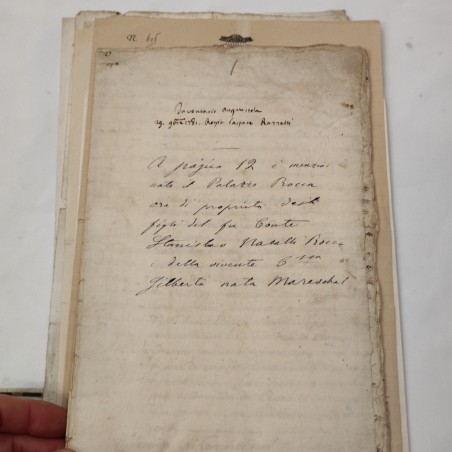 N. 606
1
Inventario Anguissola
29. 9bre 1781. Rogito Gaspare
A pagina 12 è menzio
nato il Palazzo Rocca
ora di proprietà degli
figli del fu Conte
Stanislao Nasalli Rocca
e della vivente C.ssa
Gilberta nata Mareschal